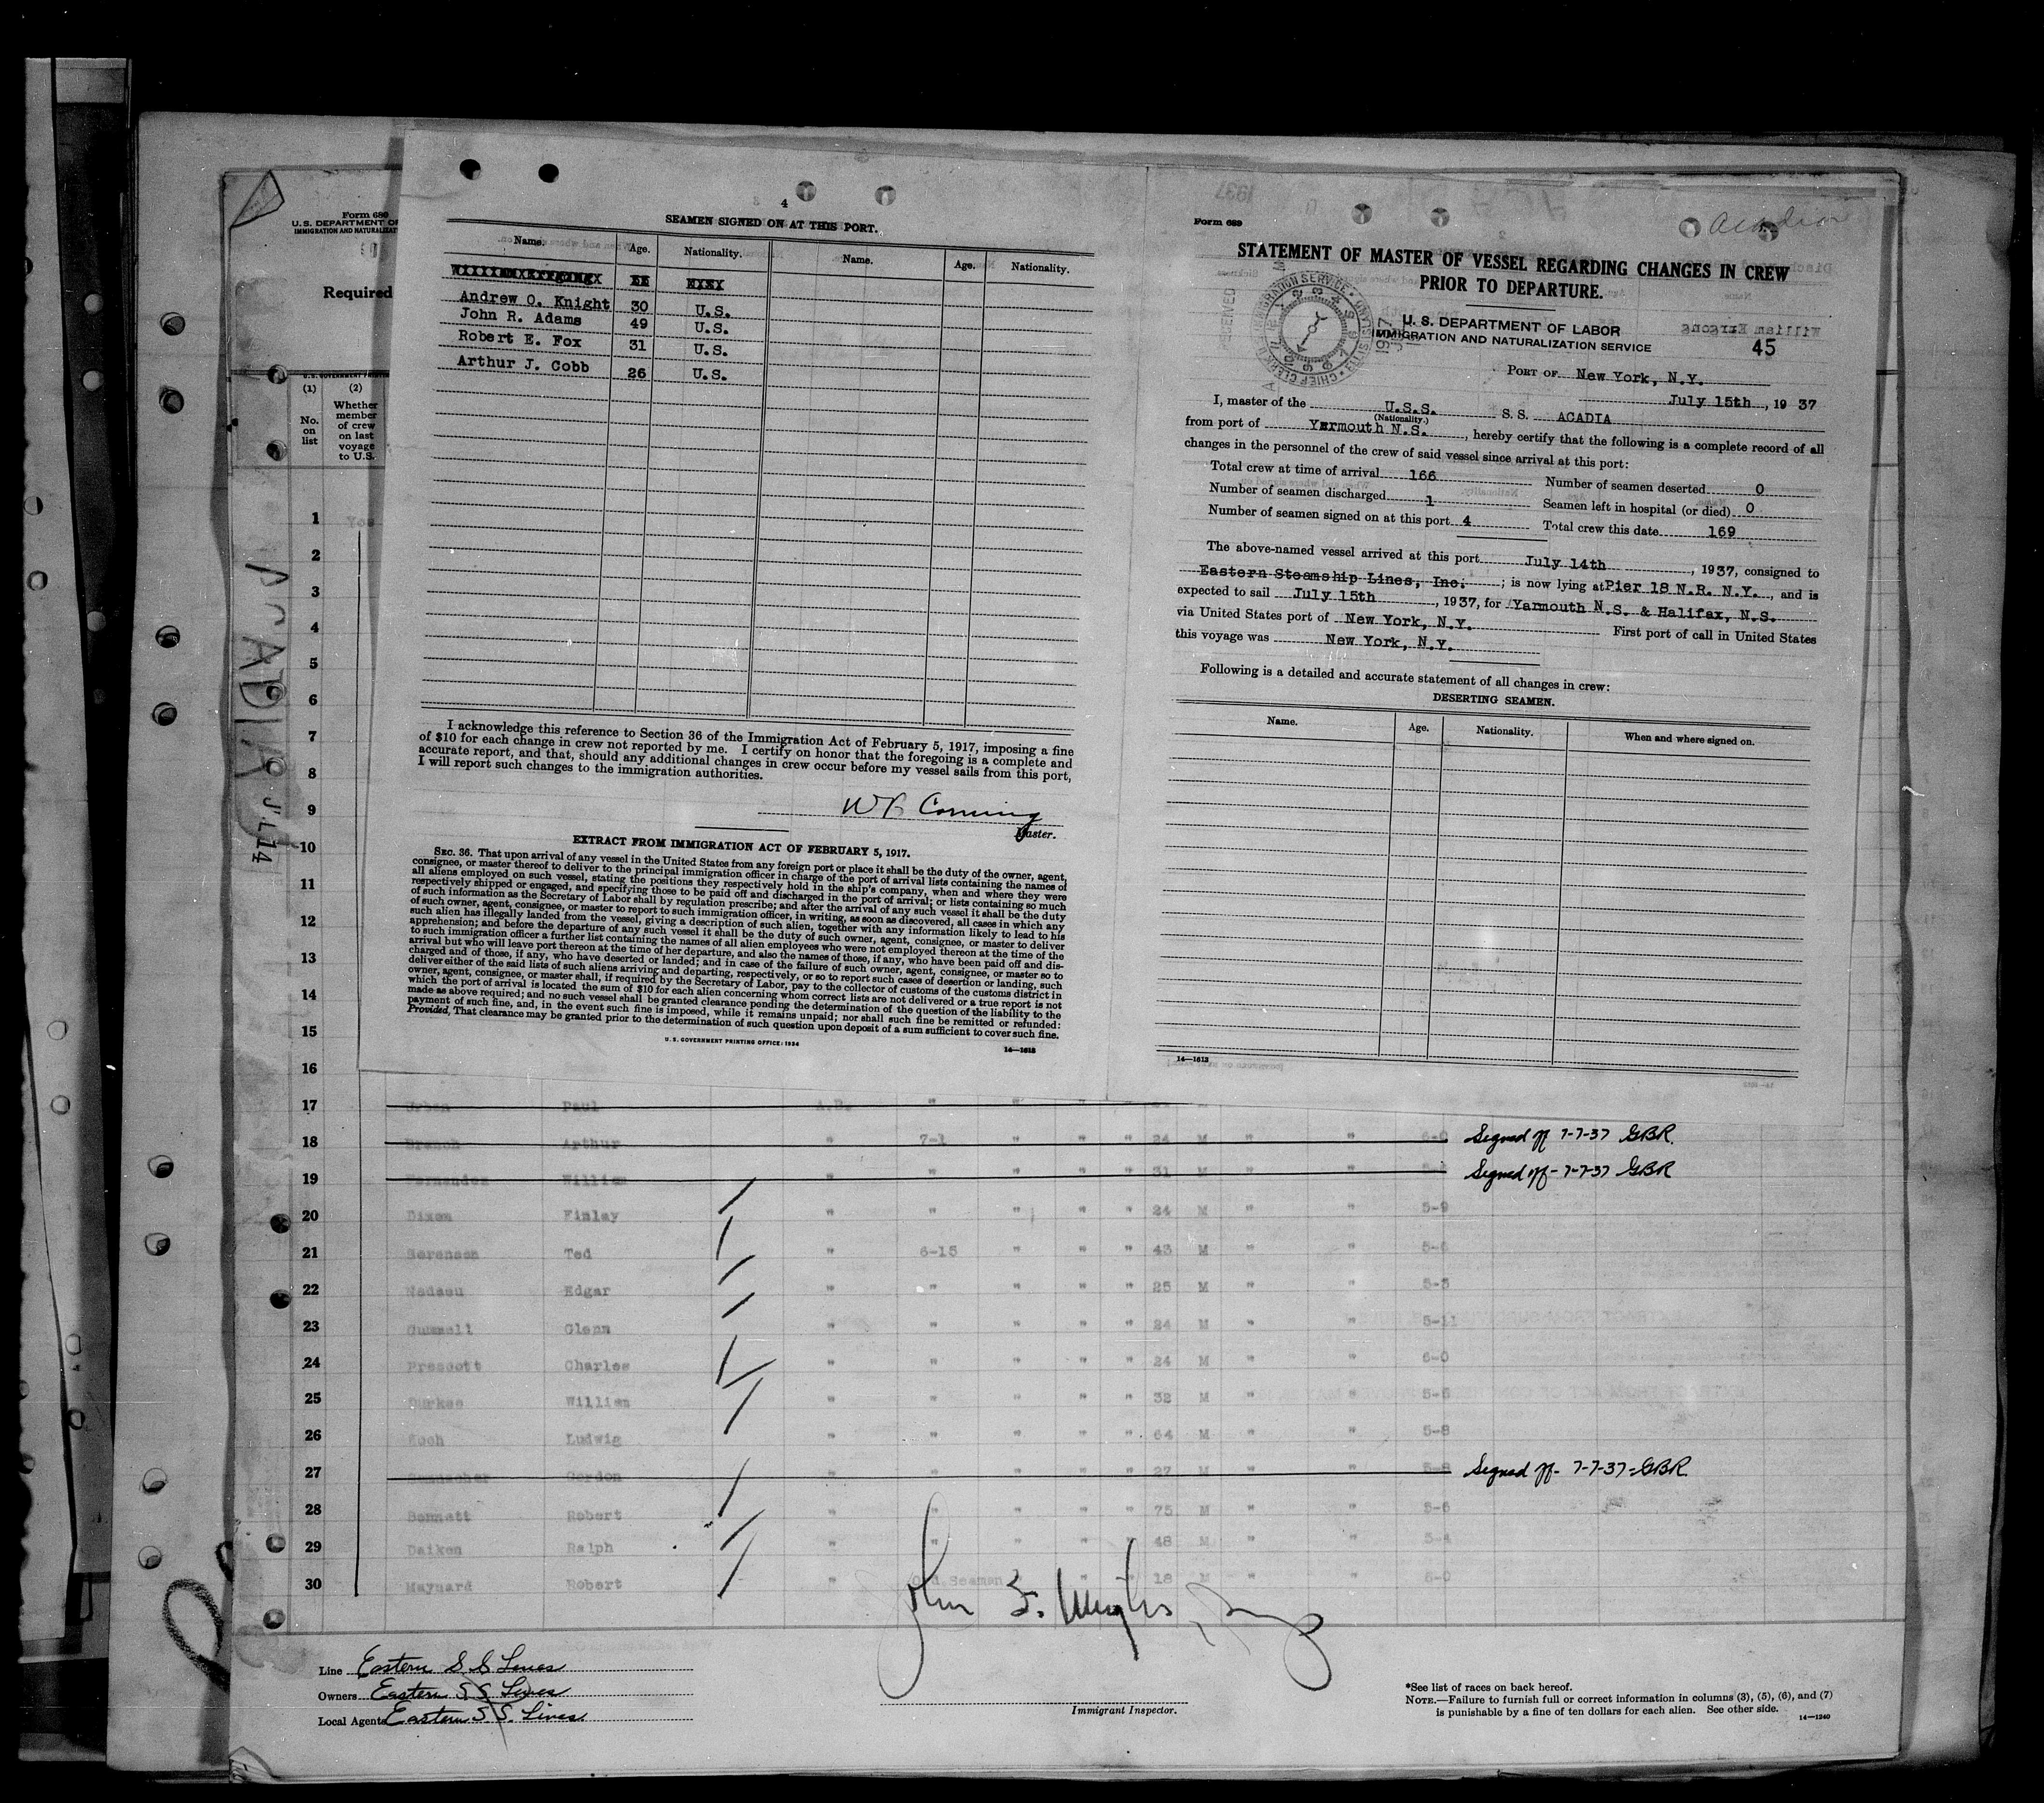 Form 689
U. S. DEPARTMENT OF
IMMIGRATION AND NATURALIZAT
Required
U. S. GOVERNMENT PRINTIN
(1) (2)
No. on list
Whether member of crew on last voyage to U.S.
ACADIA JUL 14
4
SEAMEN SIGNED ON AT THIS PORT.
Name. Age. Nationality. Name. Age. Nationality.
Andrew O. Knight 30 U.S.
John R. Adams 49 U.S.
Robert E. Fox 31 U.S.
Arthur J. Cobb 26 U.S.
I acknowledge this reference to Section 36 of the Immigration Act of February 5, 1917, imposing a fine
of $10 for each change in crew not reported by me. I certify on honor that the foregoing is a complete and
accurate report, and that, should any additional changes in crew occur before my vessel sails from this port,
I will report such changes to the immigration authorities.
Corning
Master.
EXTRACT FROM IMMIGRATION ACT OF FEBRUARY 5, 1917.
SEC. 36. That upon arrival of any vessel in the United States from any foreign port or place it shall be the duty of the owner, agent,
consignee, or master thereof to deliver to the principal immigration officer in charge of the port of arrival lists containing the names of
all aliens employed on such vessel, stating the positions they respectively hold in the ship's company, when and where they were
respectively shipped or engaged, and specifying those to be paid off and discharged in the port of arrival; or lists containing so much
of such information as the Secretary of Labor shall by regulation prescribe; and after the arrival of any such vessel it shall be the duty
of such owner, agent, consignee, or master to report to such immigration officer, in writing, as soon as discovered, all cases in which any
such alien has illegally landed from the vessel, giving a description of such alien, together with any information likely to lead to his
apprehension; and before the departure of any such vessel it shall be the duty of such owner, agent, consignee, or master to deliver
to such immigration officer a further list containing the names of all alien employees who were not employed thereon at the time of the
arrival but who will leave port thereon at the time of her departure, and also the names of those, if any, who have been paid off and dis-
charged and of those, if any, who have deserted or landed; and in case of the failure of such owner, agent, consignee, or master so to
deliver either of the said lists of such aliens arriving and departing, respectively, or so to report such cases of desertion or landing, such
owner, agent, consignee, or master shall, if required by the Secretary of Labor, pay to the collector of customs of the customs district in
which the port of arrival is located the sum of $10 for each alien concerning whom correct lists are not delivered or a true report is not
made as above required; and no such vessel shall be granted clearance pending the determination of the question of the liability to the
payment of such fine, and, in the event such fine is imposed, while it remains unpaid; nor shall such fine be remitted or refunded:
Provided, That clearance may be granted prior to the determination of such question upon deposit of a sum sufficient to cover such fine.
U. S. GOVERNMENT PRINTING OFFICE: 1934 14—1613
Acadia
Form 689
STATEMENT OF MASTER OF VESSEL REGARDING CHANGES IN CREW
PRIOR TO DEPARTURE.
U. S. DEPARTMENT OF LABOR
IMMIGRATION AND NATURALIZATION SERVICE
45
RECEIVED
1937
PORT OF New York, N.Y.
July 15th, 1937
I, master of the U.S.S. S. S. ACADIA
(Nationality.)
from port of Yarmouth N.S., hereby certify that the following is a complete record of all
changes in the personnel of the crew of said vessel since arrival at this port:
Total crew at time of arrival 166 Number of seamen deserted 0
Number of seamen discharged 1 Seamen left in hospital (or died) 0
Number of seamen signed on at this port 4 Total crew this date 169
The above-named vessel arrived at this port July 14th, 1937, consigned to
Eastern Steamship Lines, Inc.; is now lying at Pier 18 N.R. N.Y., and is
expected to sail July 15th, 1937, for Yarmouth N.S. & Halifax, N.S.
via United States port of New York, N.Y. First port of call in United States
this voyage was New York, N.Y.
Following is a detailed and accurate statement of all changes in crew:
DESERTING SEAMEN.
Name. Age. Nationality. When and where signed on.
14—1613
1 Yes
2
3
4
5
6
7
8
9
10
11
12
13
14
15
16
17 Urban Paul A.B. " " "
18 Branch Arthur " 7-1 " " " 24 M " " 6-0 Signed off 7-7-37 GBR.
19 Fernandez William " " " " " 31 M " " Signed off - 7-7-37 GBR
20 Dixon Finlay " " " " " 24 M " " 5-9
21 Sorensen Ted " 6-15 " " " 43 M " " 5-6
22 Nadeau Edgar " " " " " 25 M " " 5-5
23 Gummell Glenn " " " " " 24 M " " 5-11
24 Prescott Charles " " " " " 24 M " " 6-0
25 Durkee William " " " " " 32 M " " 5-6
26 Koch Ludwig " " " " " 64 M " " 5-8
27 Gordon " " " " " 27 M " " 5-8 Signed off - 7-7-37 - GBR.
28 Bennett Robert " " " " " 75 M " " 5-6
29 Daiken Ralph " " " " " 48 M " " 5-4
30 Maynard Robert " Ord. Seaman " " " 18 M " " 6-0
Line Eastern S S Lines
Owners Eastern S S Lines
Local Agents Eastern S. S. Lines
Immigrant Inspector.
*See list of races on back hereof.
NOTE.—Failure to furnish full or correct information in columns (3), (5), (6), and (7)
is punishable by a fine of ten dollars for each alien. See other side.
14—1240